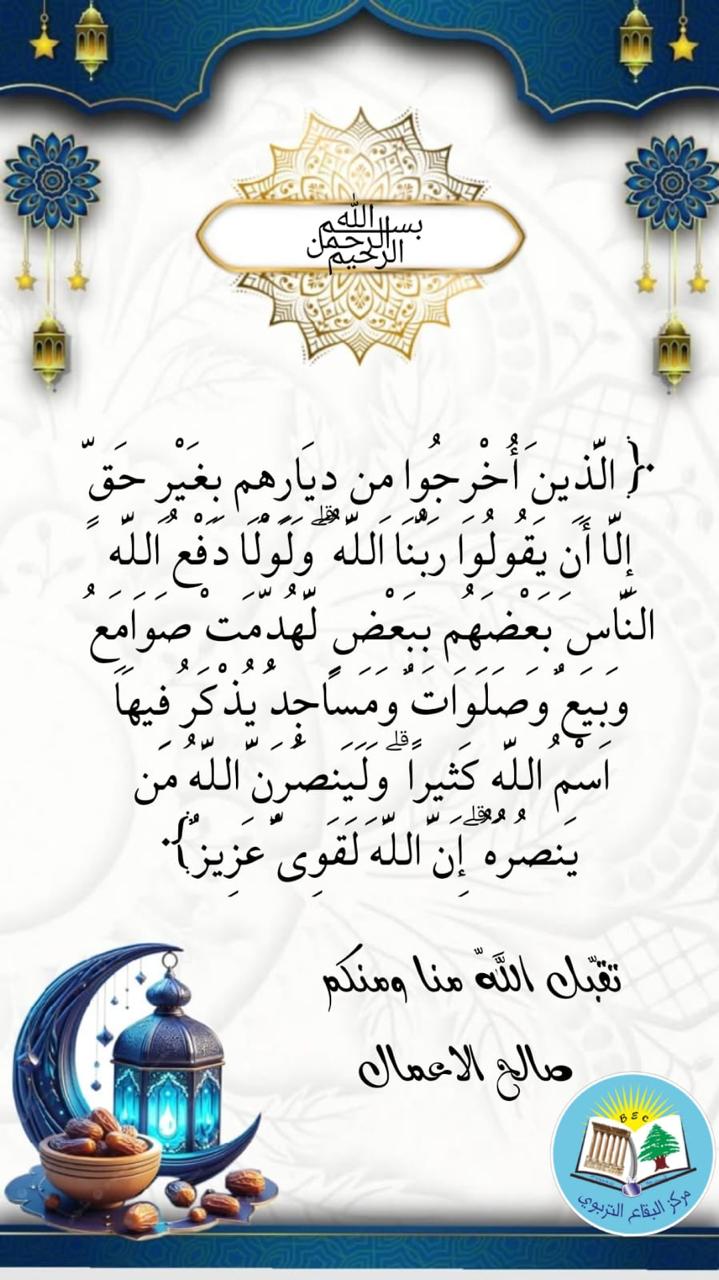 بسم الله الرحمن الرحيم
﴿ الَّذِينَ أُخْرِجُوا مِن دِيَارِهِم بِغَيْرِ حَقٍّ
إِلَّا أَن يَقُولُوا رَبُّنَا اللَّهُ ۗ وَلَوْلَا دَفْعُ اللَّهِ
النَّاسَ بَعْضَهُم بِبَعْضٍ لَّهُدِّمَتْ صَوَامِعُ
وَبِيَعٌ وَصَلَوَاتٌ وَمَسَاجِدُ يُذْكَرُ فِيهَا
اسْمُ اللَّهِ كَثِيرًا ۗ وَلَيَنصُرَنَّ اللَّهُ مَن
يَنصُرُهُ ۗ إِنَّ اللَّهَ لَقَوِيٌّ عَزِيزٌ ﴾
تقبّل اللّه منا ومنكم
صالح الاعمال
BEC
مركز البقاع التربوي